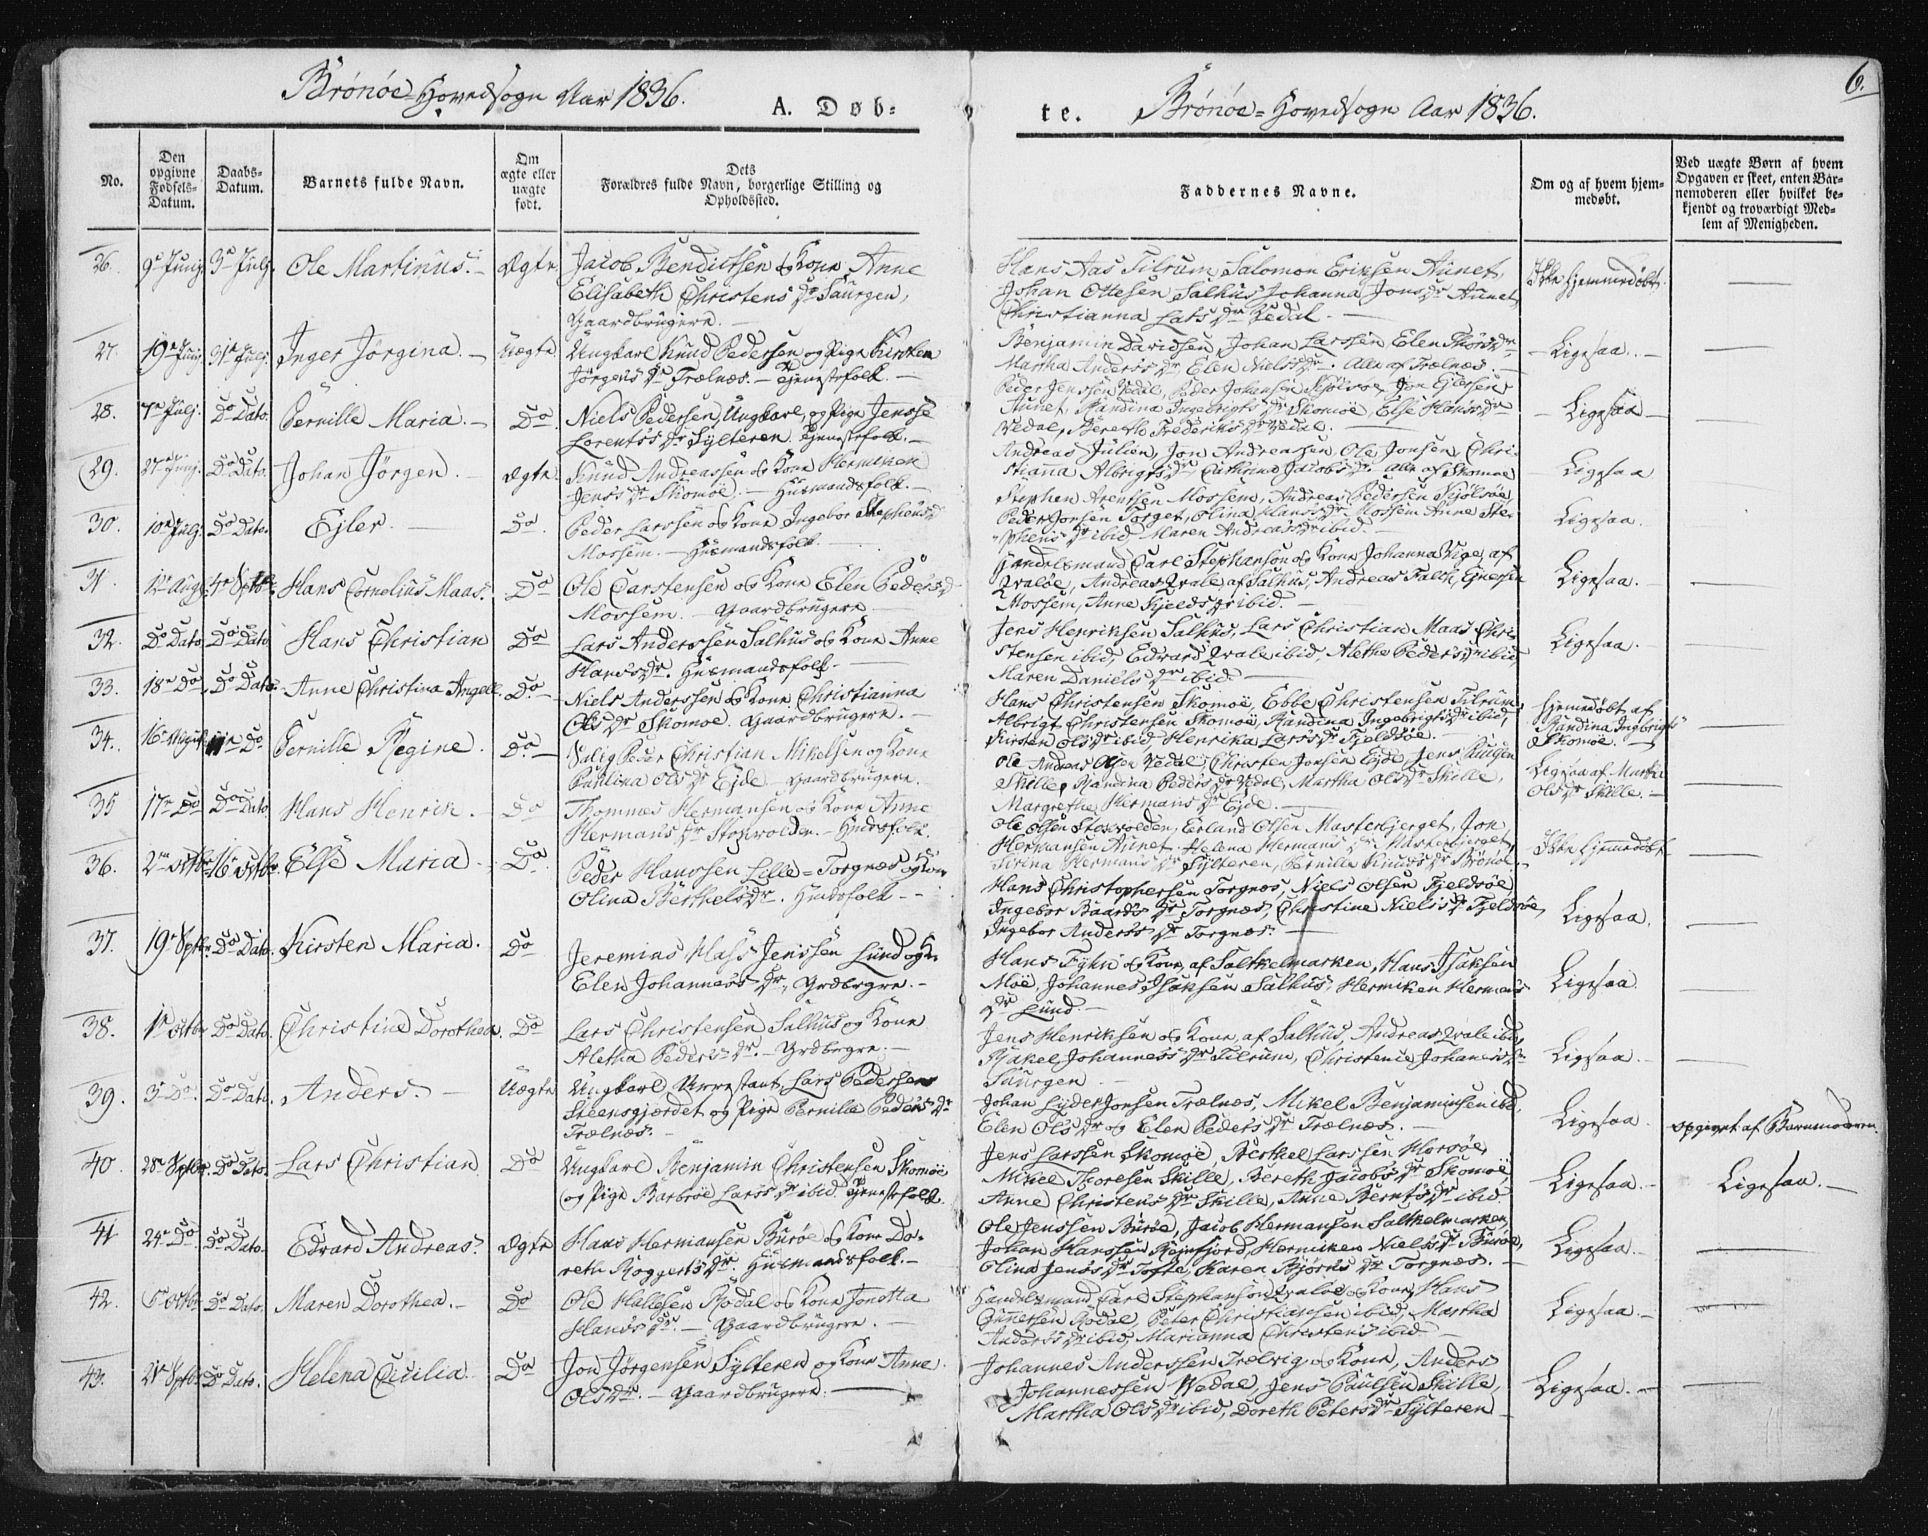 Brönöe-Hovedsogn Aar 1836.
A. Døb-
te.
Brönöe-Hovedsogn Aar 1836.
6.
No.
Den opgivne Fødsels-Datum.
Daabs-Datum.
Barnets fulde Navn.
Om ægte eller uægte født.
Dets Forældres fulde Navn, borgerlige Stilling og Opholdssted.
Faddernes Navne.
Om og af hvem hjemmedøbt.
Ved uægte Børn af hvem Opgaven er skeet, enten Barnemoderen eller hvilket bekjendt og troværdigt Medlem af Menigheden.
26. 9de Junj. 3de Julj. Ole Martinus.- Ægte. Jacob Bendictsen og Kone Anne
Elisabeth Christens Dr Saurgen,
Gaardbrugere. -
Hans Aas Tilrum, Salomon Eriksen Aunet,
Johan Ottesen Salhus, Johanna Jons Dr Aunet,
Christianna Lars Dr Vedal. -
Ikke hjemmedøbt.
27. 19de Junj. 31te Julj. Inger Jörgina. - Uægte Ungkarl Knud Pedersen og Pige Kirsten
Jörgens Dr Trælnæs. - Tjenestefolk. -
Benjamin Davidsen, Johan Larssen, Elen Thors Dr
Martha Anders's Dr, Elen Niels's Dr. Alle af Trælnæs. -
- Ligesaa. -
28. 7de Julj. Do Dato. Pernille Maria. - Do - Niels Pedersen, Ungkarl, og Pige Jensse
Lorents's Dr Sylteren. Tjenestefolk. -
Peder Jenssen Vedal, Peder Johansen, Jon Ejlersen
Aunet, Randina Ingebrigts Dr Skomöe, Else Hans's Dr
Vedal, Bereth Frederiks Dr Vedal.
- Ligesaa -
29. 27de Junj. Do Dato. Johan Jörgen. - Ægte. Knud Andreassen og Kone Hermiken
Jens's Dr Skomöe. - Husmandsfolk. -
Andreas Julien, Jon Andreassen, Ole Jonsen, Chri-
stianna Albrigts Dr, Cathrine Jacobs Dr. Alle af Skomoe
Ligesaa
30. 10de Julj. Do Dato. Ejler. - Do. Peder Larssen og Kone Ingebor Stephens Dr
Mossem. - Husmandsfolk. -
Stephen Arentsen Mossem, Andreas Pedersen,
Peder Jonsen Torget, Olina Hans's Dr Mossem, Anne Ste-
phens Dr ibid, Maren Andreas's Dr ibid.
Ligesaa.
31. 12te Aug. 4de Sptbr. Hans Cornelius Maas. Do Ole Carstensen og Kone Elen Peders Dr
Mossem. - Gaardbrugere -
Handelsmand Carl Stephanson og Kone Johanna Vige, af
Qvaløe, Andreas Qvale af Salhus, Andreas Falch, Ejnersen
Mossem, Anne Kjelds Dr ibid. -
Ligesaa. -
32. Do Dato Do Dato Hans Christian Do Lars Anderssen Salhus og Kone Anne
Hans's Dr. Husmandsfolk. -
Jens Henriksen Salhus, Lars Christian Maas Chri-
stensen ibid, Edvard Qvale ibid, Aletha Peders Dr ibid
Maren Daniels Dr ibid. -
Ligesaa.
33. 18de Do Do Dato. Anne Christina Angell. Do. - Niels Anderssen og Kone Christianna
Ols Dr Skomoe. Gaardbrugere. -
Hans Christensen Skomöe, Ebbe Christensen Tilrum,
Albrigt Christensen Skomöe, Randina Ingebrigts Dr ibid,
Kirsten Ols Dr ibid, Henrika Lars's Dr Fjeldsöe.
Hjemmedöbt af
Randina Ingbrigts
Dr Skomöe. -
34. 16de 11te Do. Pernille Regine. Do. - Salig Peder Christian Mikelsen og Kone
Paulina Ols Dr Ejde - Gaardbrugere. -
Ole Andreas Olsen Vedal, Christen Jonsen Ejde, Jens Paulsen
Skille, Randina Peders Dr Vedal, Martha Ols Dr Skille,
Margrethe Hermans Dr Ejde. -
Ligesaa af Martha
Ols Dr Skille. -
35 17de Do Do Dato. Hans Henrik. - Do Thommes Hermansen og Kone Anne
Hermans Dr Storvolden. - Husfolk.
Ole Olsen Storvolden, Erland Olsen Masterbjerget, Jon
Hermansen Aunet, Helena Hermans Dr Masterbjerget,
Hermans Dr Sylteren, Pernille Knuds Dr Brönöe.
Ikke hjemmedöbt
36. 2den 16de Else Maria - Do. Peder Hanssen Lille-Torgnæs og Kone
Olina Berthels Dr. Husfolk - -
Hans Christophersen Torgnæs, Niels Olsen Fjeldsöe,
Ingebor Baards Dr Torgnæs, Christine Niels's Dr Fjeldsöe,
Ingebor Anders's Dr Torgnæs. -
Ligesaa.
37. 19de Sptbr. Do Dato. Kirsten Maria. Do Jeremias Hass Jenssen Lund og K.
Elen Johannes's Dr, Grdbrgre. -
Hans Fyhn og Kone, af Saltkelmarken, Hans Isaksen
Möe, Johannes Isaksen Salhus, Hermiken Hermans
Dr Lund. -
Ligesaa.
38. Do Dato. Christine Dorothea. Do Lars Christensen Salhus og Kone
Aletha Peders Dr. - Grdbrgre. -
Jens Henriksen og Kone, af Salhus, Andreas Qvale ibid,
Rakel Johannes's Dr Tilrum, Christenie Johannes's Dr
Saurgen -
Ligesaa.
39. 3de Do. Do Dato. Anders. - Uægte Ungkarl Arrestant, Lars Pedersen
Steensgjærdet og Pige Pernille Peders Dr
Trælnæs. -
Johan Lyder Jonsen Trælnæs, Mikel Benjaminsen ibd,
Elen Ols Dr og Elen Peders Dr Trælnæs. -
Ligesaa. opgivet af Barnemoderen.
40. 28de Sptbr. Do Dato. Lars Christian Do Ungkarl Benjamin Christensen Skomöe
og Pige Barbroe Lars's Dr ibid. Tjenestefolk
Jens Larssen Skomöe, Berthel Larssen Horsöe,
Mikel Thoresen Skille, Bereth Jacobs Dr Skomöe,
Anne Christens Dr Skille, Anne Bernts Dr ibid
Ligesaa. - Ligesaa. -
41 24de Do Do Dato. Edvard Andreas. Ægte Hans Hermansen Buröe og Kone Do-
reth Roggerts Dr. Husmandsfolk. -
Ole Jenssen Buröe, Jacob Hermansen Saltkelmarken,
Johan Hanssen Rejnfjord, Hermiken Niels's Dr Buröe,
Olina Jens's Dr Tofte, Karen Björns Dr Torgnæs. -
Ligesaa. -
42. Do Dato. Maren Dorothea. - Do Ole Hallesen Rödal og Kone Jonetta
Hans's Dr. - Gaardbrugere. -
Handelsmand Carl Stephanson Qvaløe og Kone, Hans
Gunnersen Rödal, Peter Christiansen ibid, Martha
Anders's Dr ibid, Marianna Christens ibid -
Ligesaa. -
43. 21de Sptbr Do Dato. Helena Cicilia. Do Jon Jörgensen Sylteren og Kone Anne
Ols Dr. - Gaardbrugere. -
Johannes Anderssen Trælvig og Kone, Anders
Johannessen Vedal, Jens Paulsen Skille,
Martha Ols Dr ibid, Doreth Peters Dr Sylteren -
Ligesaa. -